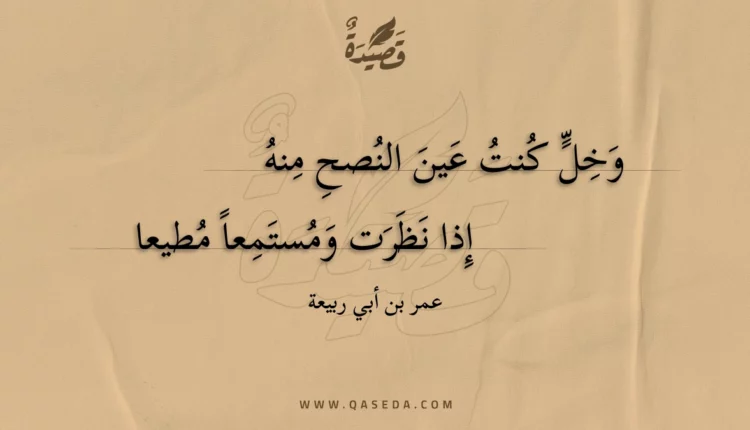 قَصِيدَةٌ
وَخِلٍّ كُنتُ عَينَ النُصحِ مِنهُ
إِذا نَظَرَت وَمُستَمِعاً مُطيعا
عمر بن أبي ربيعة
WWW.QASEDA.COM